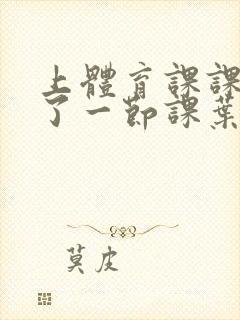 上體育課課
了一節課葉
莫皮